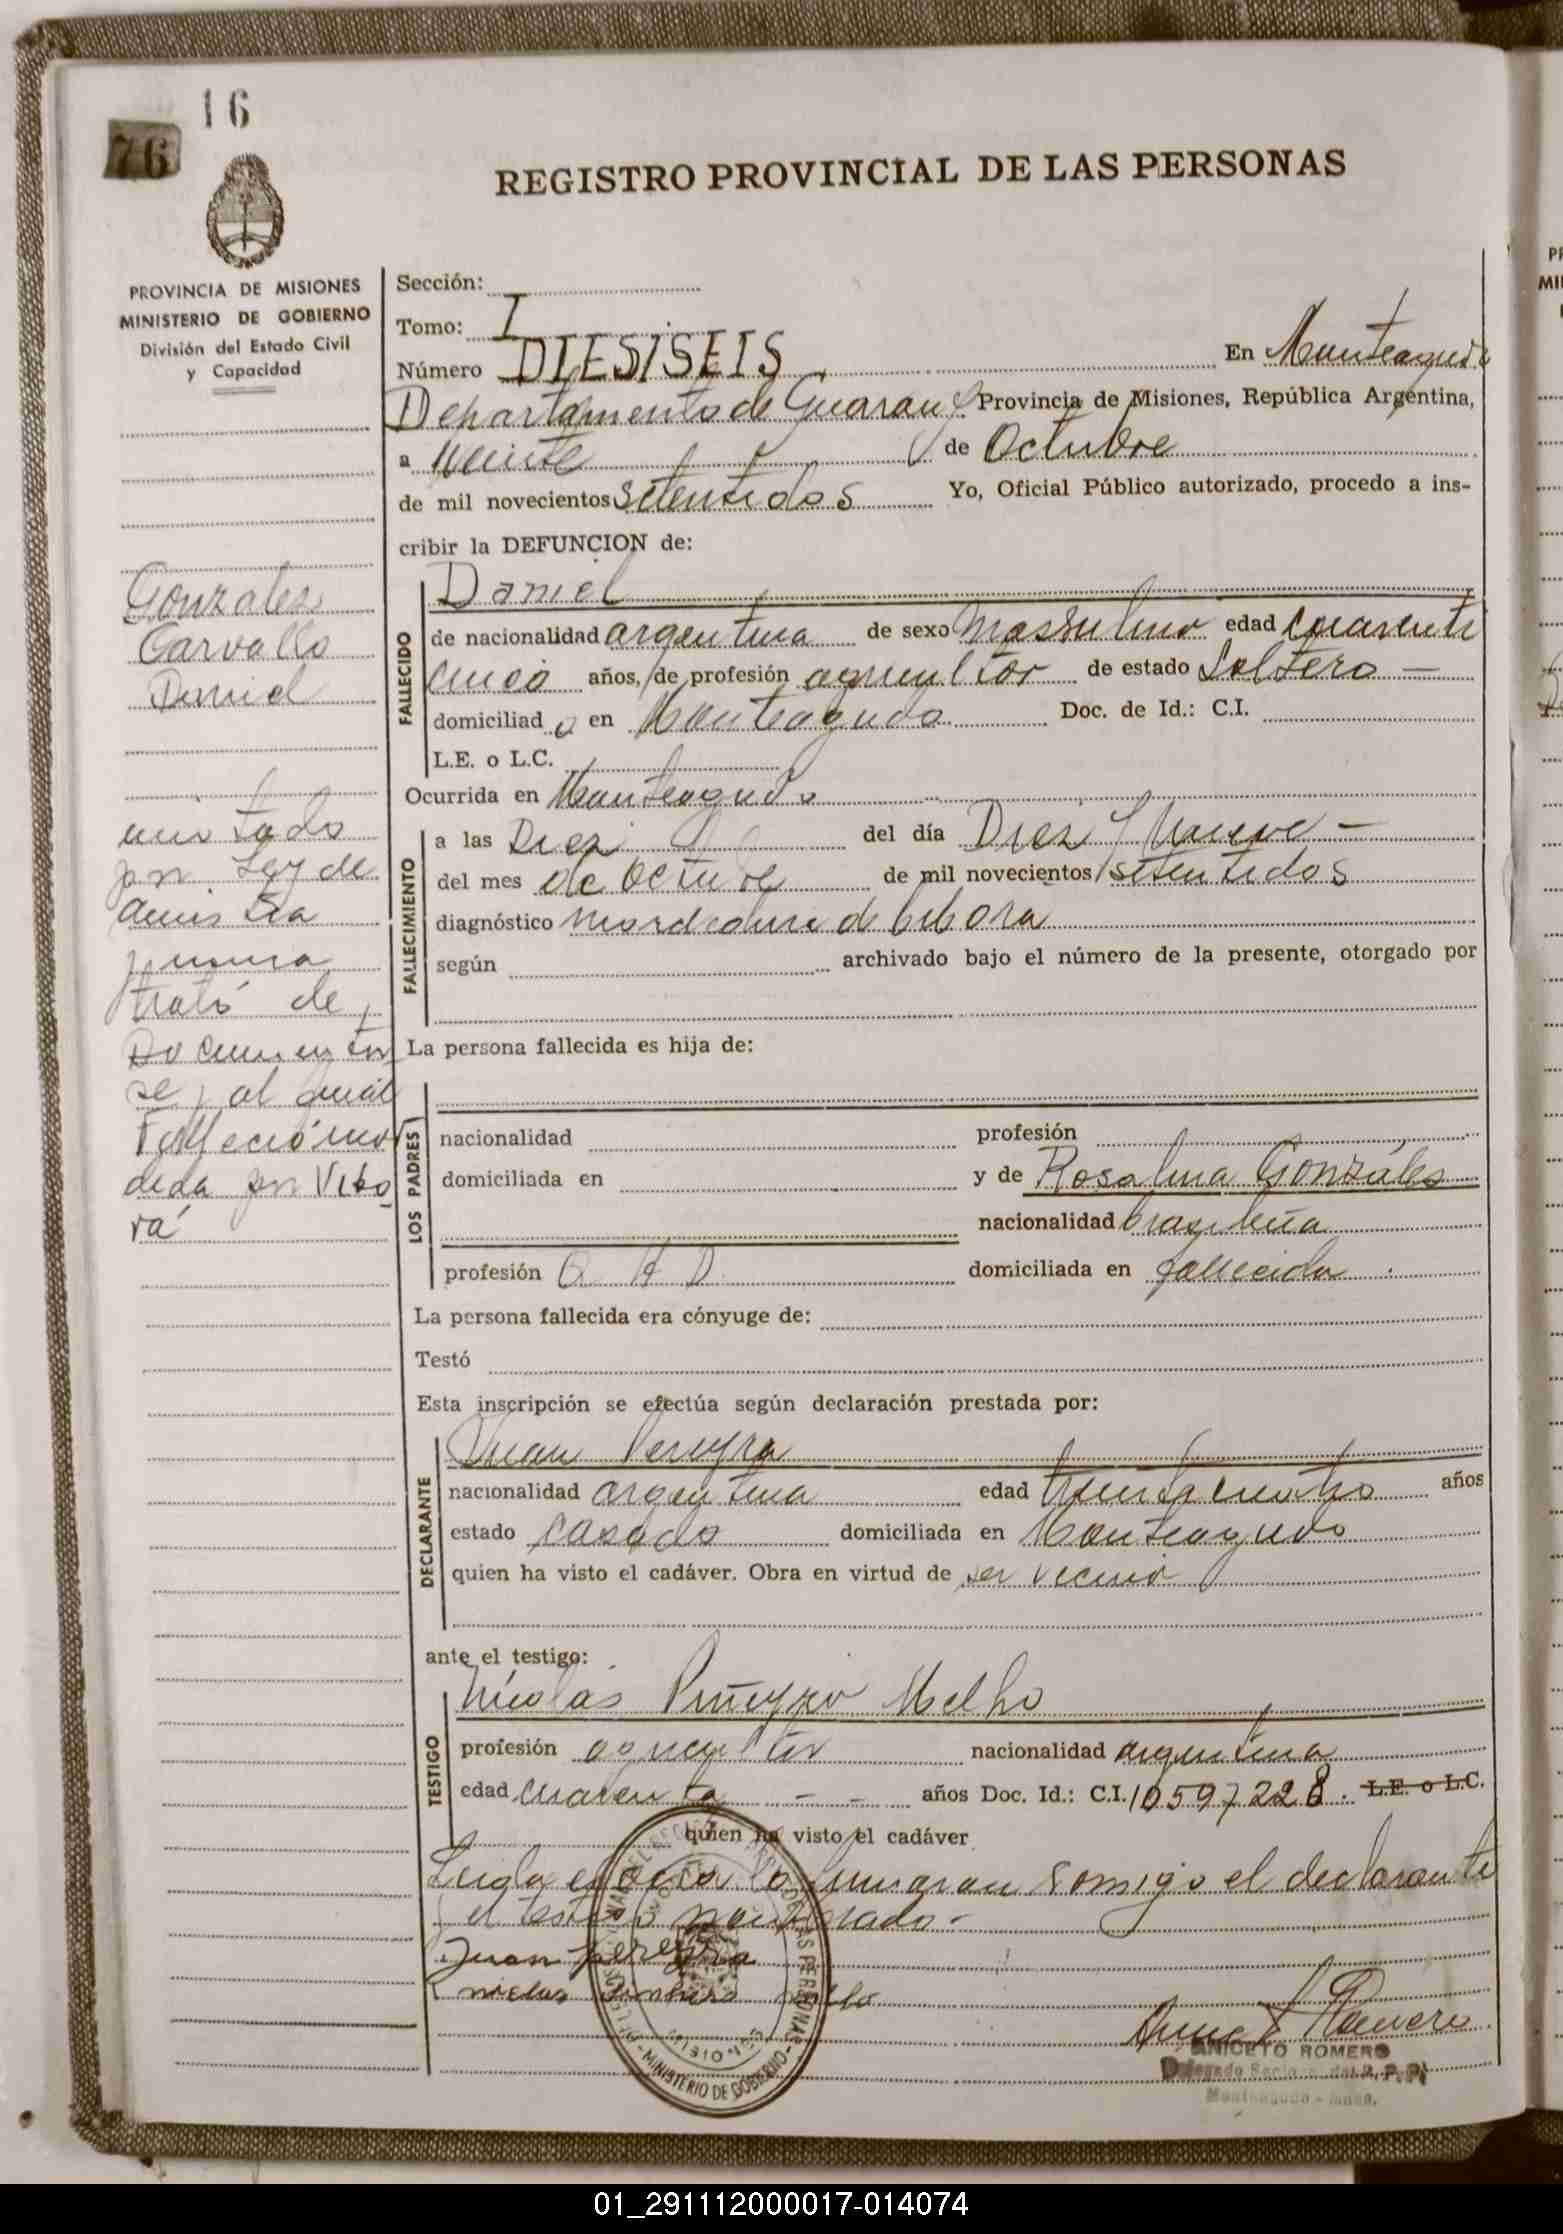 16
76
REGISTRO PROVINCIAL DE LAS PERSONAS
PROVINCIA DE MISIONES
MINISTERIO DE GOBIERNO
División del Estado Civil
y Capacidad
Gonzales
Carvallo
Daniel
por Ley de
amistia
trató de
Documentar
se, al cual
Falleció mor
dida por Vibo
rá
Sección:
Tomo: I
Número DIESISEIS En Monteagudo
Departamento de Guaraní Provincia de Misiones, República Argentina,
a Veinte de Octubre
de mil novecientos setentidos Yo, Oficial Público autorizado, procedo a ins-
cribir la DEFUNCION de:
FALLECIDO
Daniel
de nacionalidad argentina de sexo Massulino edad cuarenti
cinco años, de profesión agricultor de estado Soltero —
domiciliad o en Monteagudo Doc. de Id.: C.I.
L.E. o L.C.
Ocurrida en Monteagudo
FALLECIMIENTO
a las Diez del día Diez y Nueve —
del mes de Octubre de mil novecientos setentidos
diagnóstico mordedura de bibora
según archivado bajo el número de la presente, otorgado por
La persona fallecida es hija de:
LOS PADRES
nacionalidad profesión
domiciliada en y de Rosalina Gonzáles
nacionalidad brasileña
profesión Q. H. D. domiciliada en fallecida
La persona fallecida era cónyuge de:
Testó
Esta inscripción se efectúa según declaración prestada por:
DECLARANTE
Juan Pereyra
nacionalidad argentina edad treintacuatro años
estado casado domiciliada en Monteagudo
quien ha visto el cadáver. Obra en virtud de ser vecino
ante el testigo:
TESTIGO
Nicolás Piñeyro Melho
profesión agricultor nacionalidad argentina
edad cuarenta - - años Doc. Id.: C.I. 10597228. L.E. o L.C.
quien ha visto el cadáver
Leida el acta la firmaran comigo el declarante
y el testigo nombrado -
Juan pereyra
MINISTERIO DE GOBIERNO
ANICETO ROMERO
Delegado R.P.P.
Monteagudo - Mnes.
01_291112000017-014074